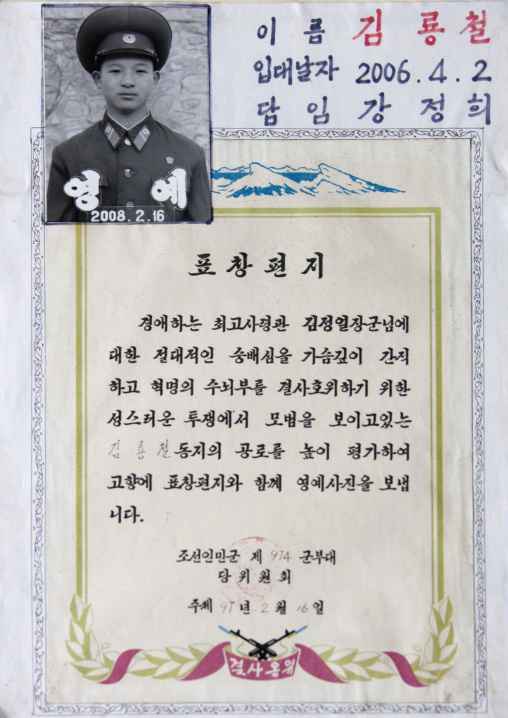 이름 김룡철
입대날자 2006.4.2
담임 강정희
영예
2008.2.16
표창편지
경애하는 최고사령관 김정일장군님에
대한 절대적인 숭배심을 가슴깊이 간직
하고 혁명의 수뇌부를 결사호위하기 위한
성스러운 투쟁에서 모범을 보이고있는
김룡철동지의 공로를 높이 평가하여
고향에 표창편지와 함께 영예사진을 보냅
니다.
조선인민군 제 974 군부대
당위원회
주체 97년 2월 16일
결사옹위